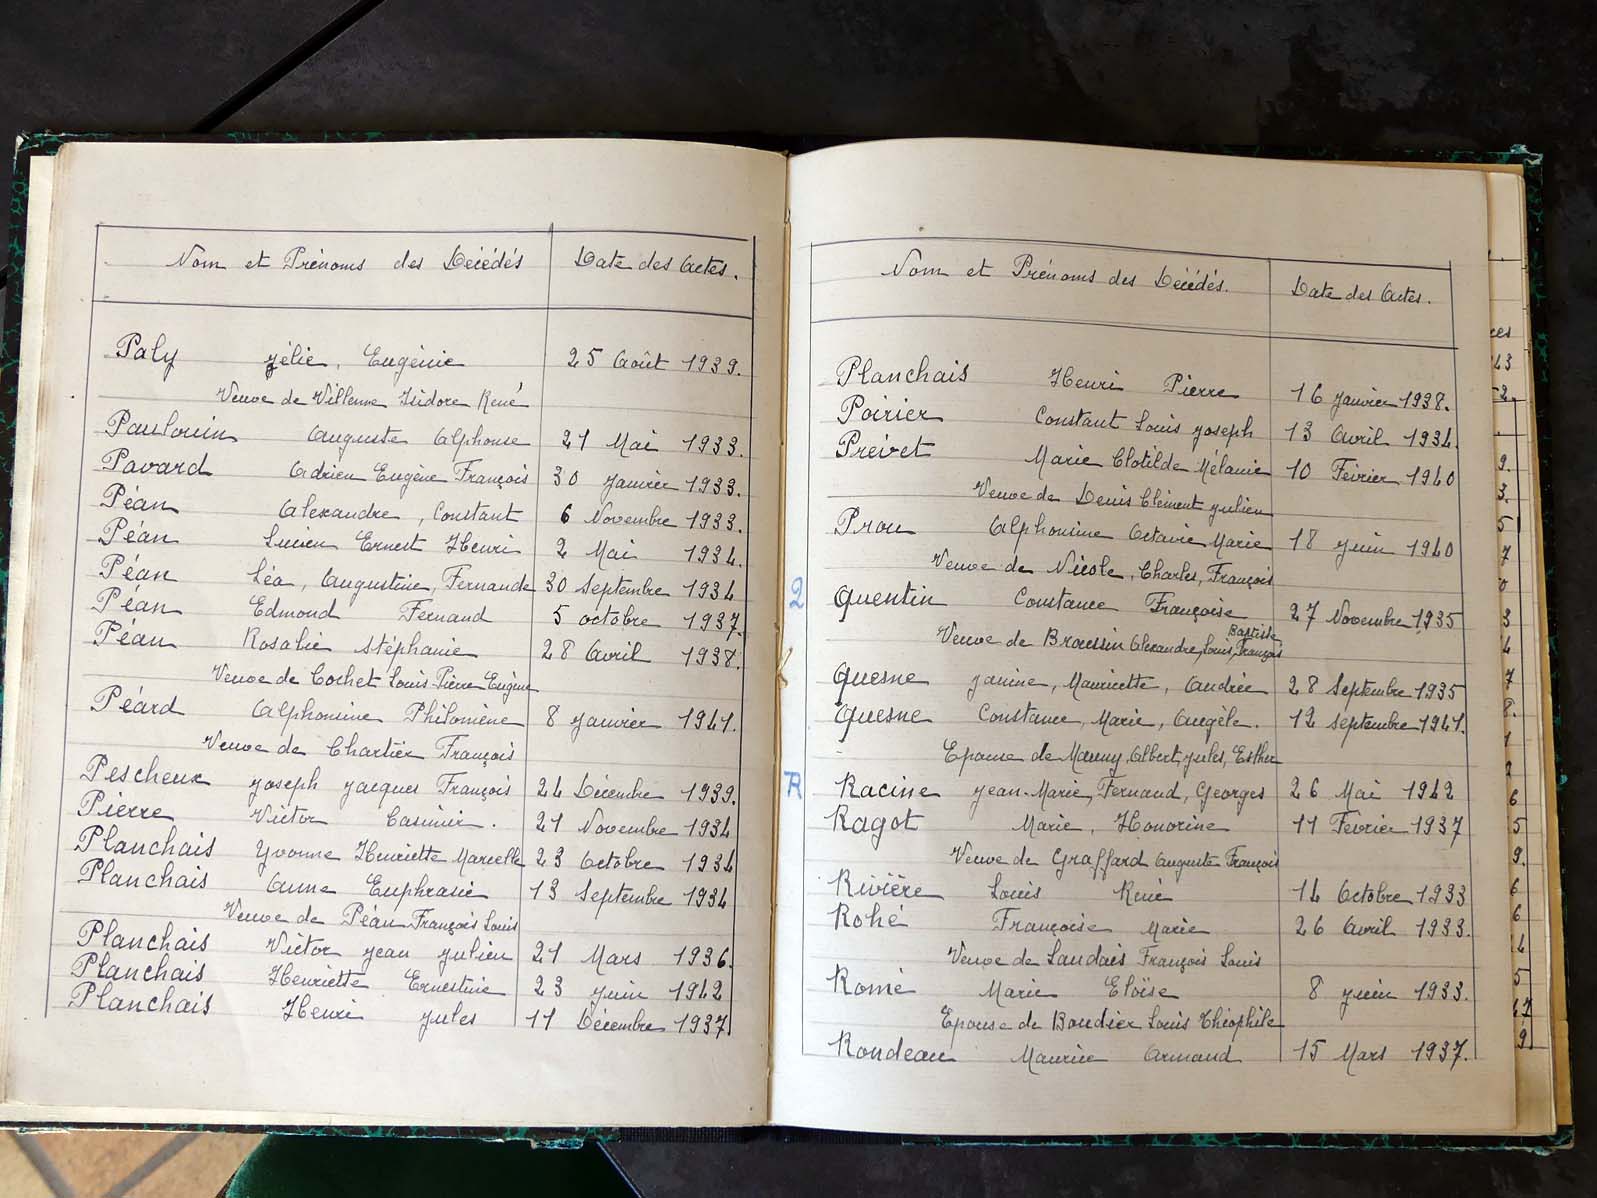 Nom et Prénoms des Décédés Date des Actes.
Paly Zélie, Eugénie 25 Août 1939.
Veuve de Villenne Isidore René
Paulouin Auguste Alphonse 21 Mai 1933.
Pavard Adrien Eugène François 30 Janvier 1933.
Péan Alexandre, Constant 6 Novembre 1933.
Péan Lucien Ernest Henri 2 Mai 1934.
Péan Léa, Augustine, Fernande 30 Septembre 1934
Péan Edmond Fernand 5 octobre 1937.
Péan Rosalie Stéphanie 28 Avril 1938.
Veuve de Cochet Louis Pierre Eugène
Péard Alphonsine Philomène 8 Janvier 1941.
Veuve de Chartier François
Pescheux Joseph Jacques François 24 Décembre 1939.
Pierre Victor Casimir. 21 Novembre 1934
Planchais Yvonne Henriette Marcelle 23 Octobre 1934
Planchais Anne Euphrasie 13 Septembre 1934
Veuve de Péan François Louis
Planchais Victor Jean Julien 21 Mars 1936.
Planchais Henriette Ernestine 23 Juin 1942
Planchais Henri Jules 11 Décembre 1937
Nom et Prénoms des Décédés. Date des Actes.
Planchais Henri Pierre 16 Janvier 1938.
Poirier Constant Louis Joseph 13 Avril 1934.
Prévet Marie Clotilde Mélanie 10 Février 1940
Veuve de Denis Clément Julien
Prou Alphonsine Octavie Marie 18 Juin 1940
Veuve de Nicole, Charles, François
Q Quentin Constance Françoise 27 Novembre 1935
Veuve de Broussin Alexandre, Louis, Baptiste François
Quesne Janine, Mauricette, Andrée 28 Septembre 1935
Quesne Constance, Marie, Angèle. 12 Septembre 1941.
Epouse de Mauny, Albert, Jules, Esther
R Racine Jean-Marie, Fernand, Georges 26 Mai 1942
Ragot Marie, Honorine 11 Février 1937
Veuve de Graffard Auguste François
Rivière Louis René 14 Octobre 1933
Rohé Françoise Marie 26 Avril 1933.
Veuve de Landais François Louis
Romé Marie Eloïse 8 Juin 1933.
Epouse de Boudier Louis Théophile
Rondeau Maurice Armand 15 Mars 1937.